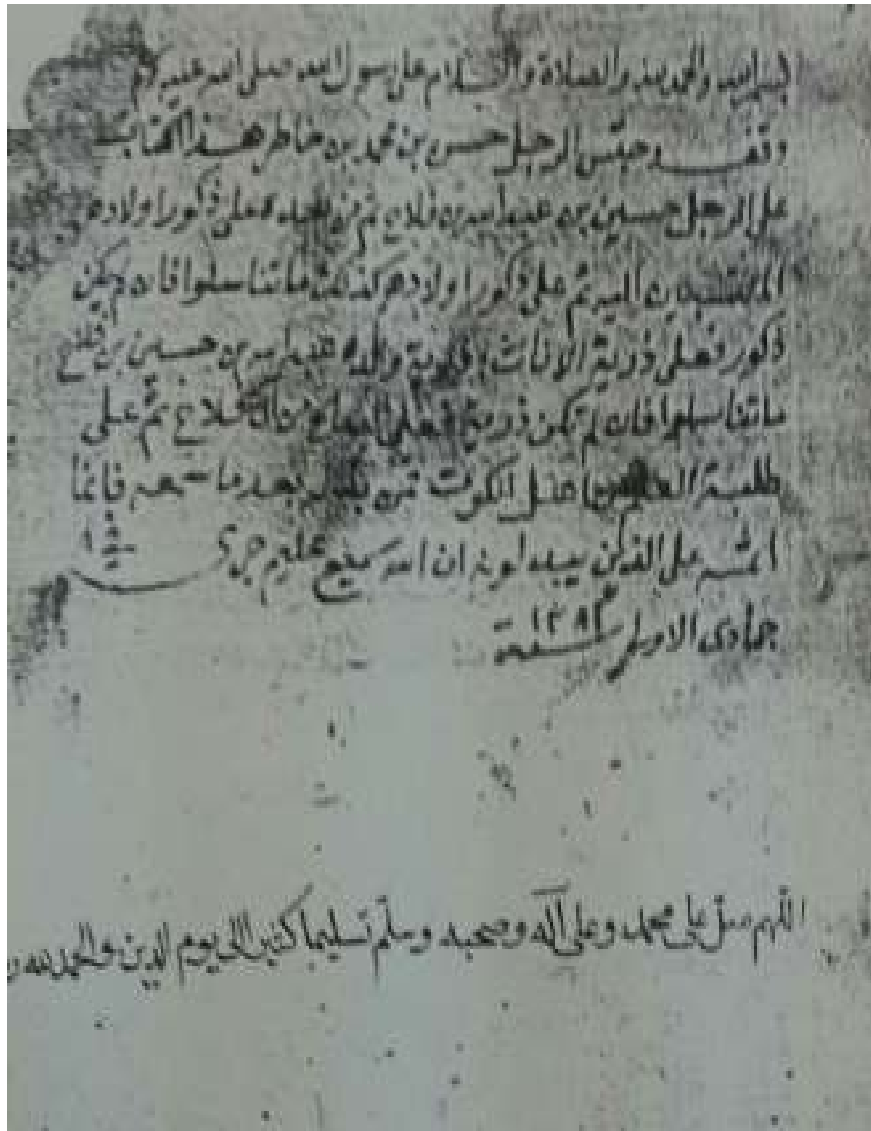 بسم الله والحمد لله والصلاة والسلام على رسول الله صلى الله عليه وسلم
وقف وحبس الرجل حسن بن محمد بن خاطر هذا الكتاب
على الرجل حسين بن عبد الله بن فلاح ثم من بعده على ذكور اولاده
المنتسبين اليه ثم على ذكور اولادهم كذلك ما تناسلوا فان لم يكن
ذكور فعلى ذرية الاناث ذرية والده عبد الله بن حسين بن فلاح
ما تناسلوا فان لم تكن ذرية فعلى من آل فلاح ثم على
طلبة العلم من اهل الكويت فمن بدله بعد ما سمعه فانما
اثمه على الذين يبدلونه ان الله سميع عليم جرى
جمادى الاولى سنة
اللهم صل على محمد وعلى آله وصحبه وسلم تسليما كثيرا الى يوم الدين والحمد لله